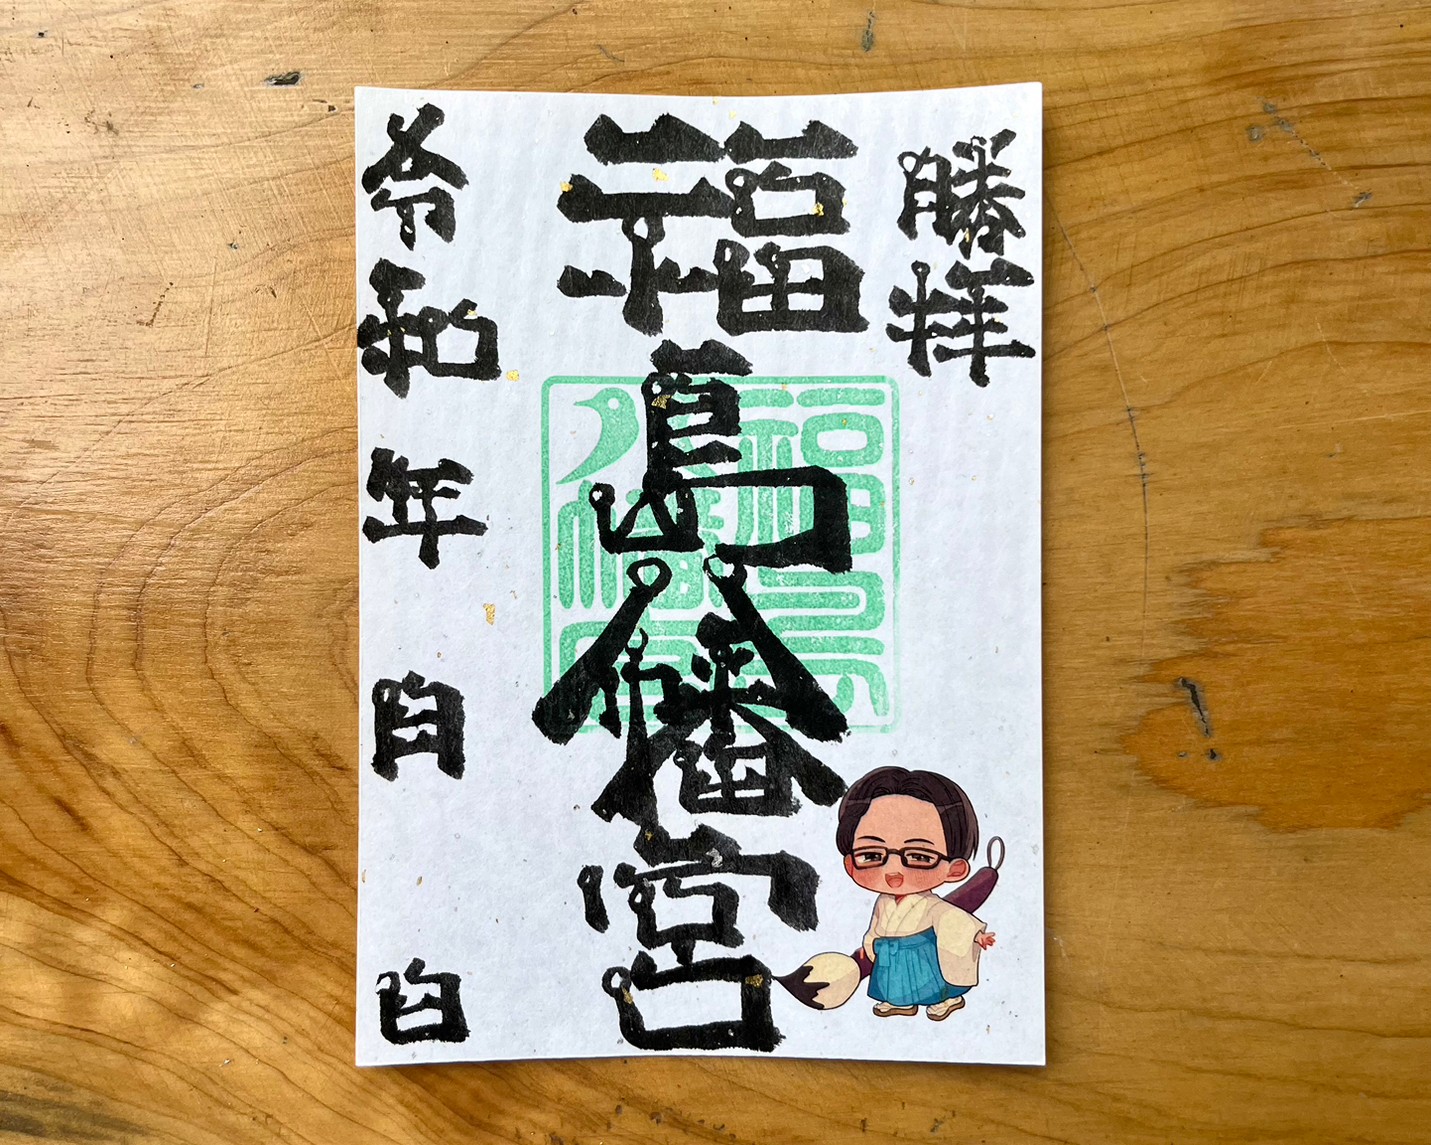 勝拝
福島八幡宮
福島
八幡宮
令和 年 月 日